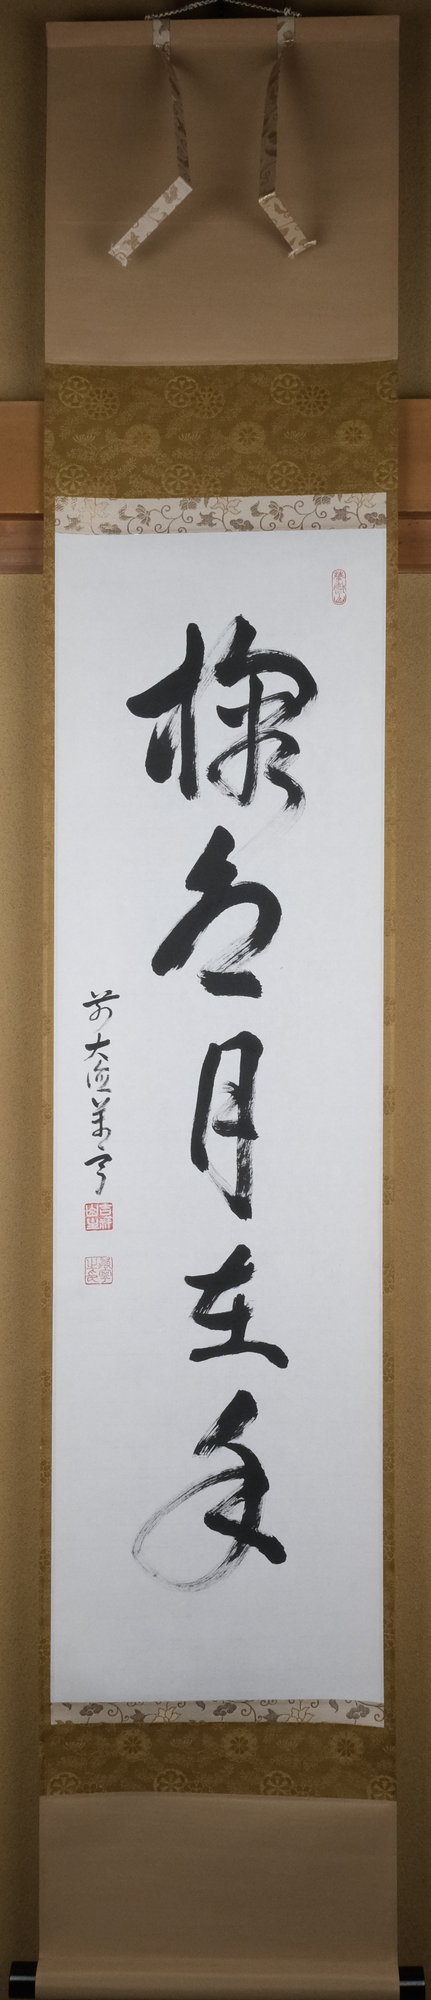 掬水月在手
前大徳